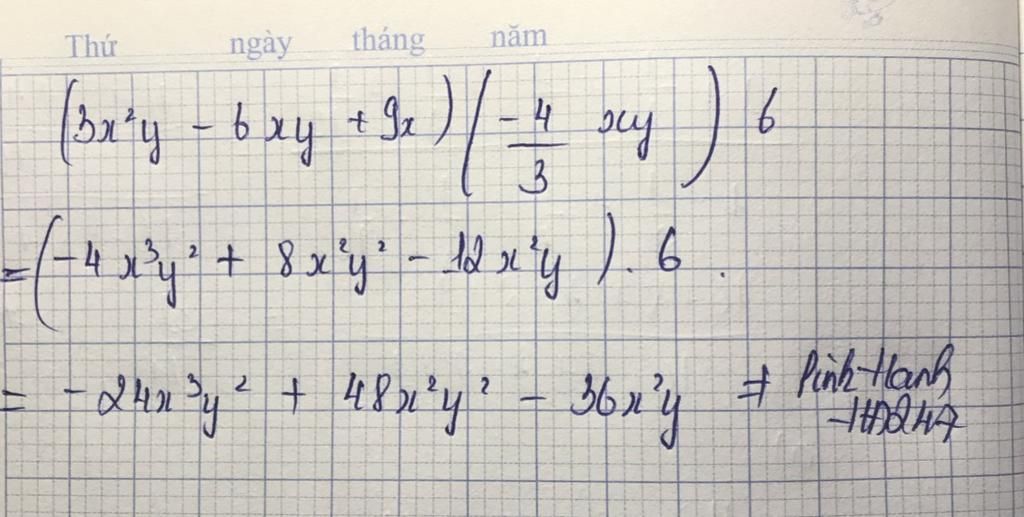 Thứ ngày tháng năm
(3x²y - 6xy + 9x) (-4/3 xy) 6
= (-4x³y² + 8x²y² - 12x²y) . 6 .
= -24x³y² + 48x²y² - 36x²y ⇒